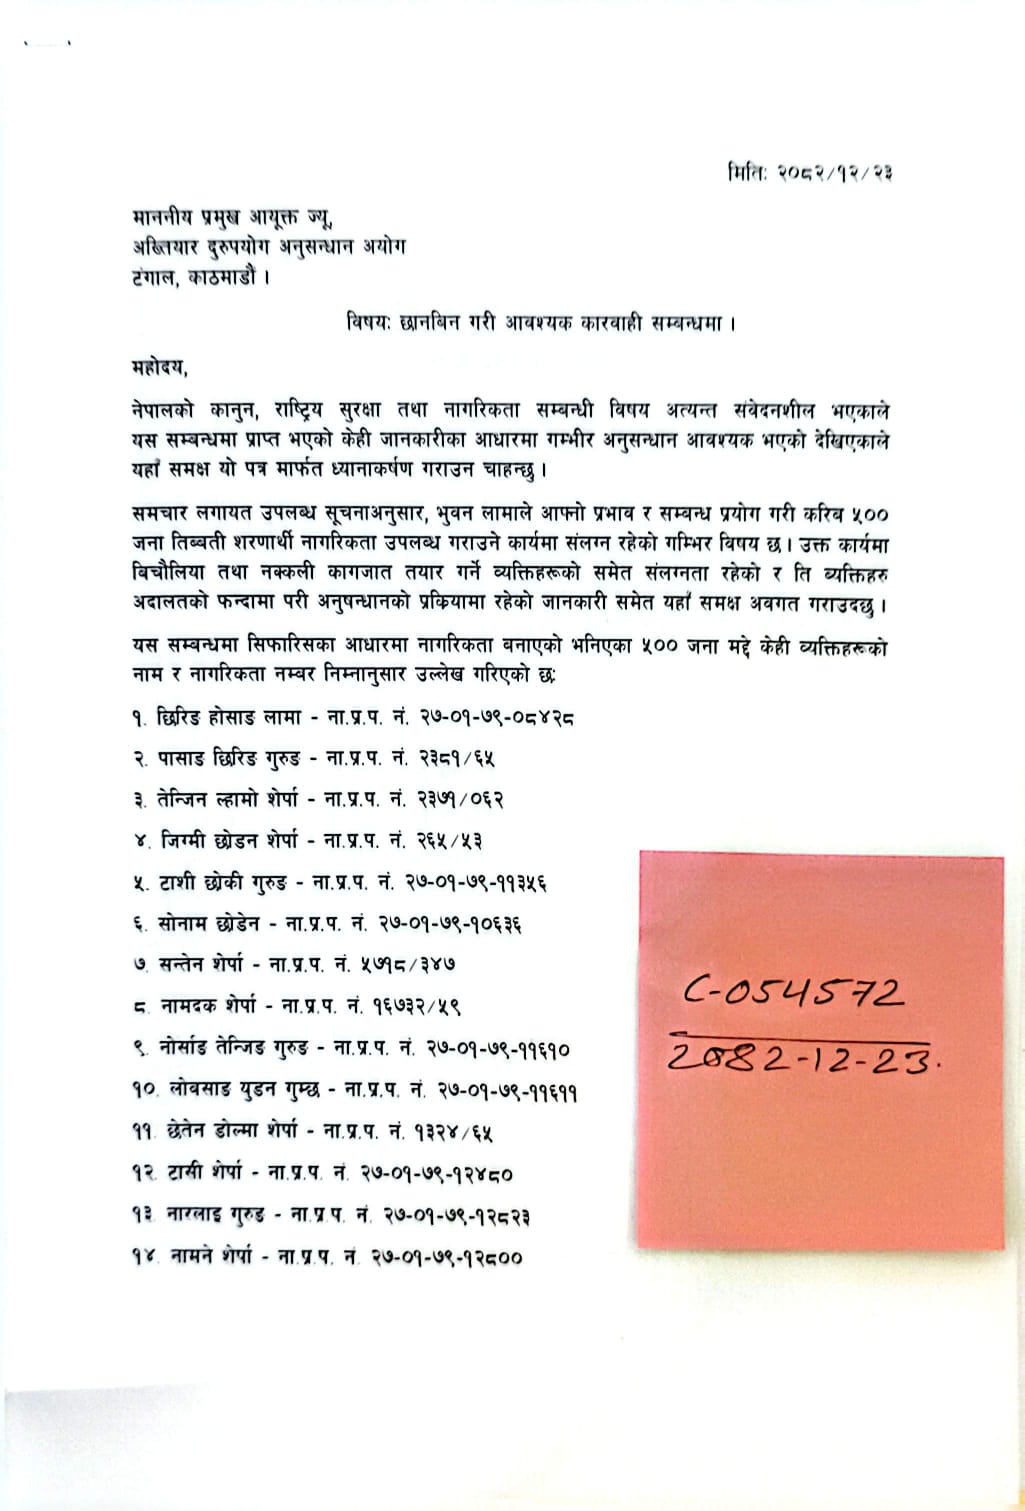 मितिः २०८२/१२/२३
माननीय प्रमुख आयूक्त ज्यू,
अख्तियार दुरुपयोग अनुसन्धान अयोग
टंगाल, काठमाडौं ।
विषयः छानबिन गरी आवश्यक कारवाही सम्बन्धमा ।
महोदय,
नेपालको कानुन, राष्ट्रिय सुरक्षा तथा नागरिकता सम्बन्धी विषय अत्यन्त संवेदनशील भएकाले
यस सम्बन्धमा प्राप्त भएको केही जानकारीका आधारमा गम्भीर अनुसन्धान आवश्यक भएको देखिएकाले
यहाँ समक्ष यो पत्र मार्फत ध्यानाकर्षण गराउन चाहन्छु ।
समचार लगायत उपलब्ध सूचनाअनुसार, भुवन लामाले आफ्नो प्रभाव र सम्बन्ध प्रयोग गरी करिब ५००
जना तिब्बती शरणार्थी नागरिकता उपलब्ध गराउने कार्यमा संलग्न रहेको गम्भिर विषय छ । उक्त कार्यमा
बिचौलिया तथा नक्कली कागजात तयार गर्ने व्यक्तिहरूको समेत संलग्नता रहेको र ति व्यक्तिहरु
अदालतको फन्दामा परी अनुषन्धानको प्रक्रियामा रहेको जानकारी समेत यहाँ समक्ष अवगत गराउदछु ।
यस सम्बन्धमा सिफारिसका आधारमा नागरिकता बनाएको भनिएका ५०० जना मद्दे केही व्यक्तिहरूको
नाम र नागरिकता नम्बर निम्नानुसार उल्लेख गरिएको छः
१. छिरिङ होसाङ लामा - ना.प्र.प. नं. २७-०१-७९-०८४२८
२. पासाङ छिरिङ गुरुङ - ना.प्र.प. नं. २३८१/६५
३. तेन्जिन ल्हामो शेर्पा - ना.प्र.प. नं. २३७१/०६२
४. जिग्मी छोडन शेर्पा - ना.प्र.प. नं. २६५/५३
५. टाशी छोकी गुरुङ - ना.प्र.प. नं. २७-०१-७९-११३५६
६. सोनाम छोडेन - ना.प्र.प. नं. २७-०१-७९-१०६३६
७. सन्तेन शेर्पा - ना.प्र.प. नं. ५७१८/३४७
८. नामदक शेर्पा - ना.प्र.प. नं. १६७३२/५९
९. नोर्साङ तेन्जिङ गुरुङ - ना.प्र.प. नं. २७-०१-७९-११६१०
१०. लोबसाङ युडन गुम्छ - ना.प्र.प. नं. २७-०१-७९-११६११
११. छेतेन डोल्मा शेर्पा - ना.प्र.प. नं. १३२४/६५
१२. टासी शेर्पा - ना.प्र.प. नं. २७-०१-७९-१२४८०
१३. नारलाइ गुरुङ - ना.प्र.प. नं. २७-०१-७९-१२८२३
१४. नामने शेर्पा - ना.प्र.प. नं. २७-०१-७९-१२८००
C-054572
2082-12-23.